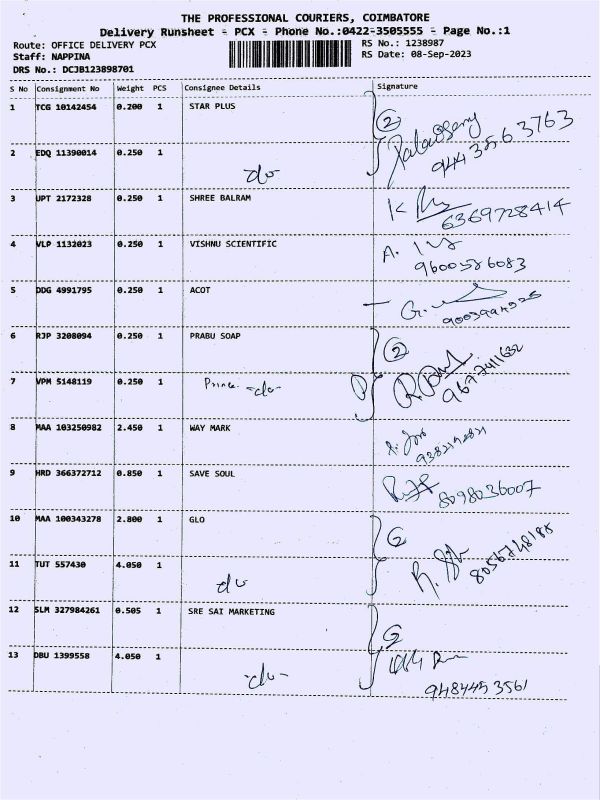 THE PROFESSIONAL COURIERS, COIMBATORE
Delivery Runsheet - PCX - Phone No.:0422-3505555 - Page No.:1
Route: OFFICE DELIVERY PCX RS No.: 1238987
Staff: NAPPINA RS Date: 08-Sep-2023
DRS No.: DCJB123898701
S No Consignment No Weight PCS Consignee Details Signature
1 TCG 10142454 0.200 1 STAR PLUS
2
2 EDQ 11390014 0.250 1
do 9443563763
3 UPT 2172328 0.250 1 SHREE BALRAM
K 6369728414
4 VLP 1132023 0.250 1 VISHNU SCIENTIFIC
A. 9600586083
5 DDG 4991795 0.250 1 ACOT
G.
6 RJP 3208094 0.250 1 PRABU SOAP
2
7 VPM 5148119 0.250 1 -do-
8 MAA 103250982 2.450 1 WAY MARK
9 HRD 366372712 0.850 1 SAVE SOUL
8098036007
10 MAA 100343278 2.800 1 GLO
2
11 TUT 557430 4.050 1
do R. 8056748188
12 SLM 327984261 0.505 1 SRE SAI MARKETING
2
13 DBU 1399558 4.050 1
-do- 9484453561